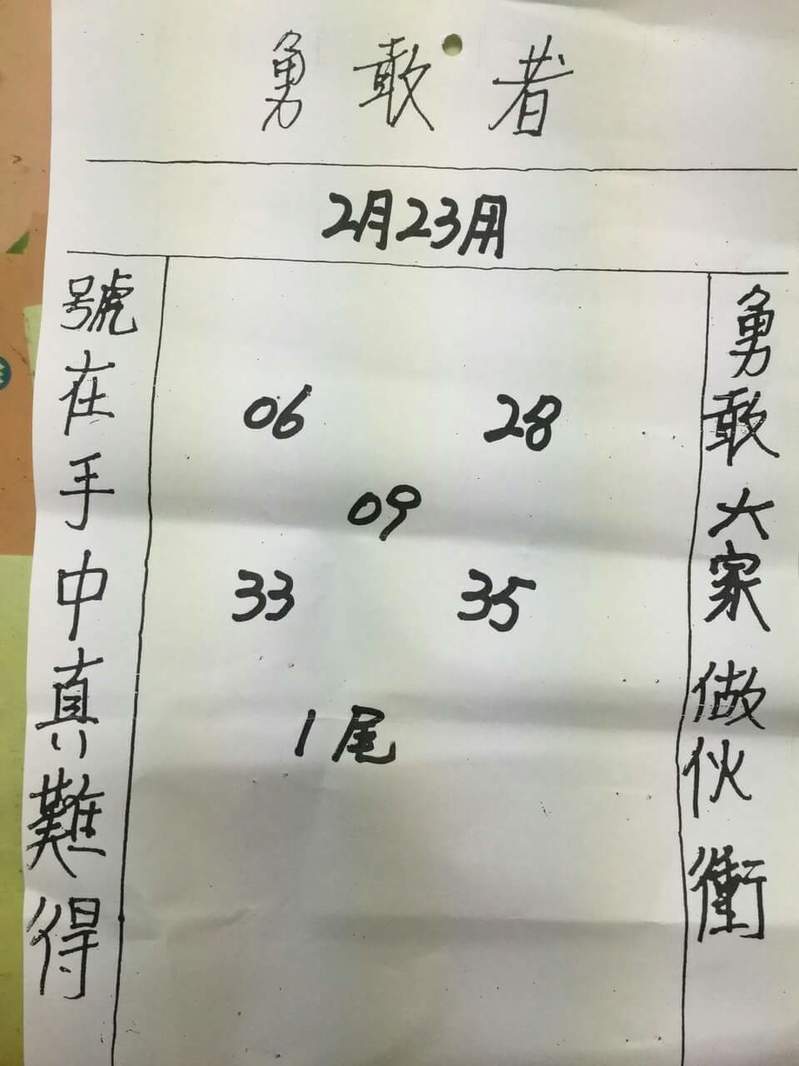 勇敢者
2月23用
勇敢大家做伙衝
06 28
09
33 35
1尾
號在手中真難得